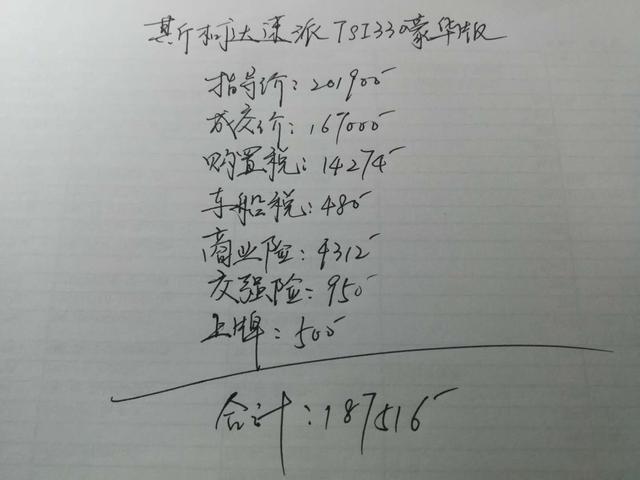 斯柯达速派TSI330豪华版
指导价:201900
成交价:167000
购置税:14274
车船税:480
商业险:4312
交强险:950
上牌:500
合计:187516